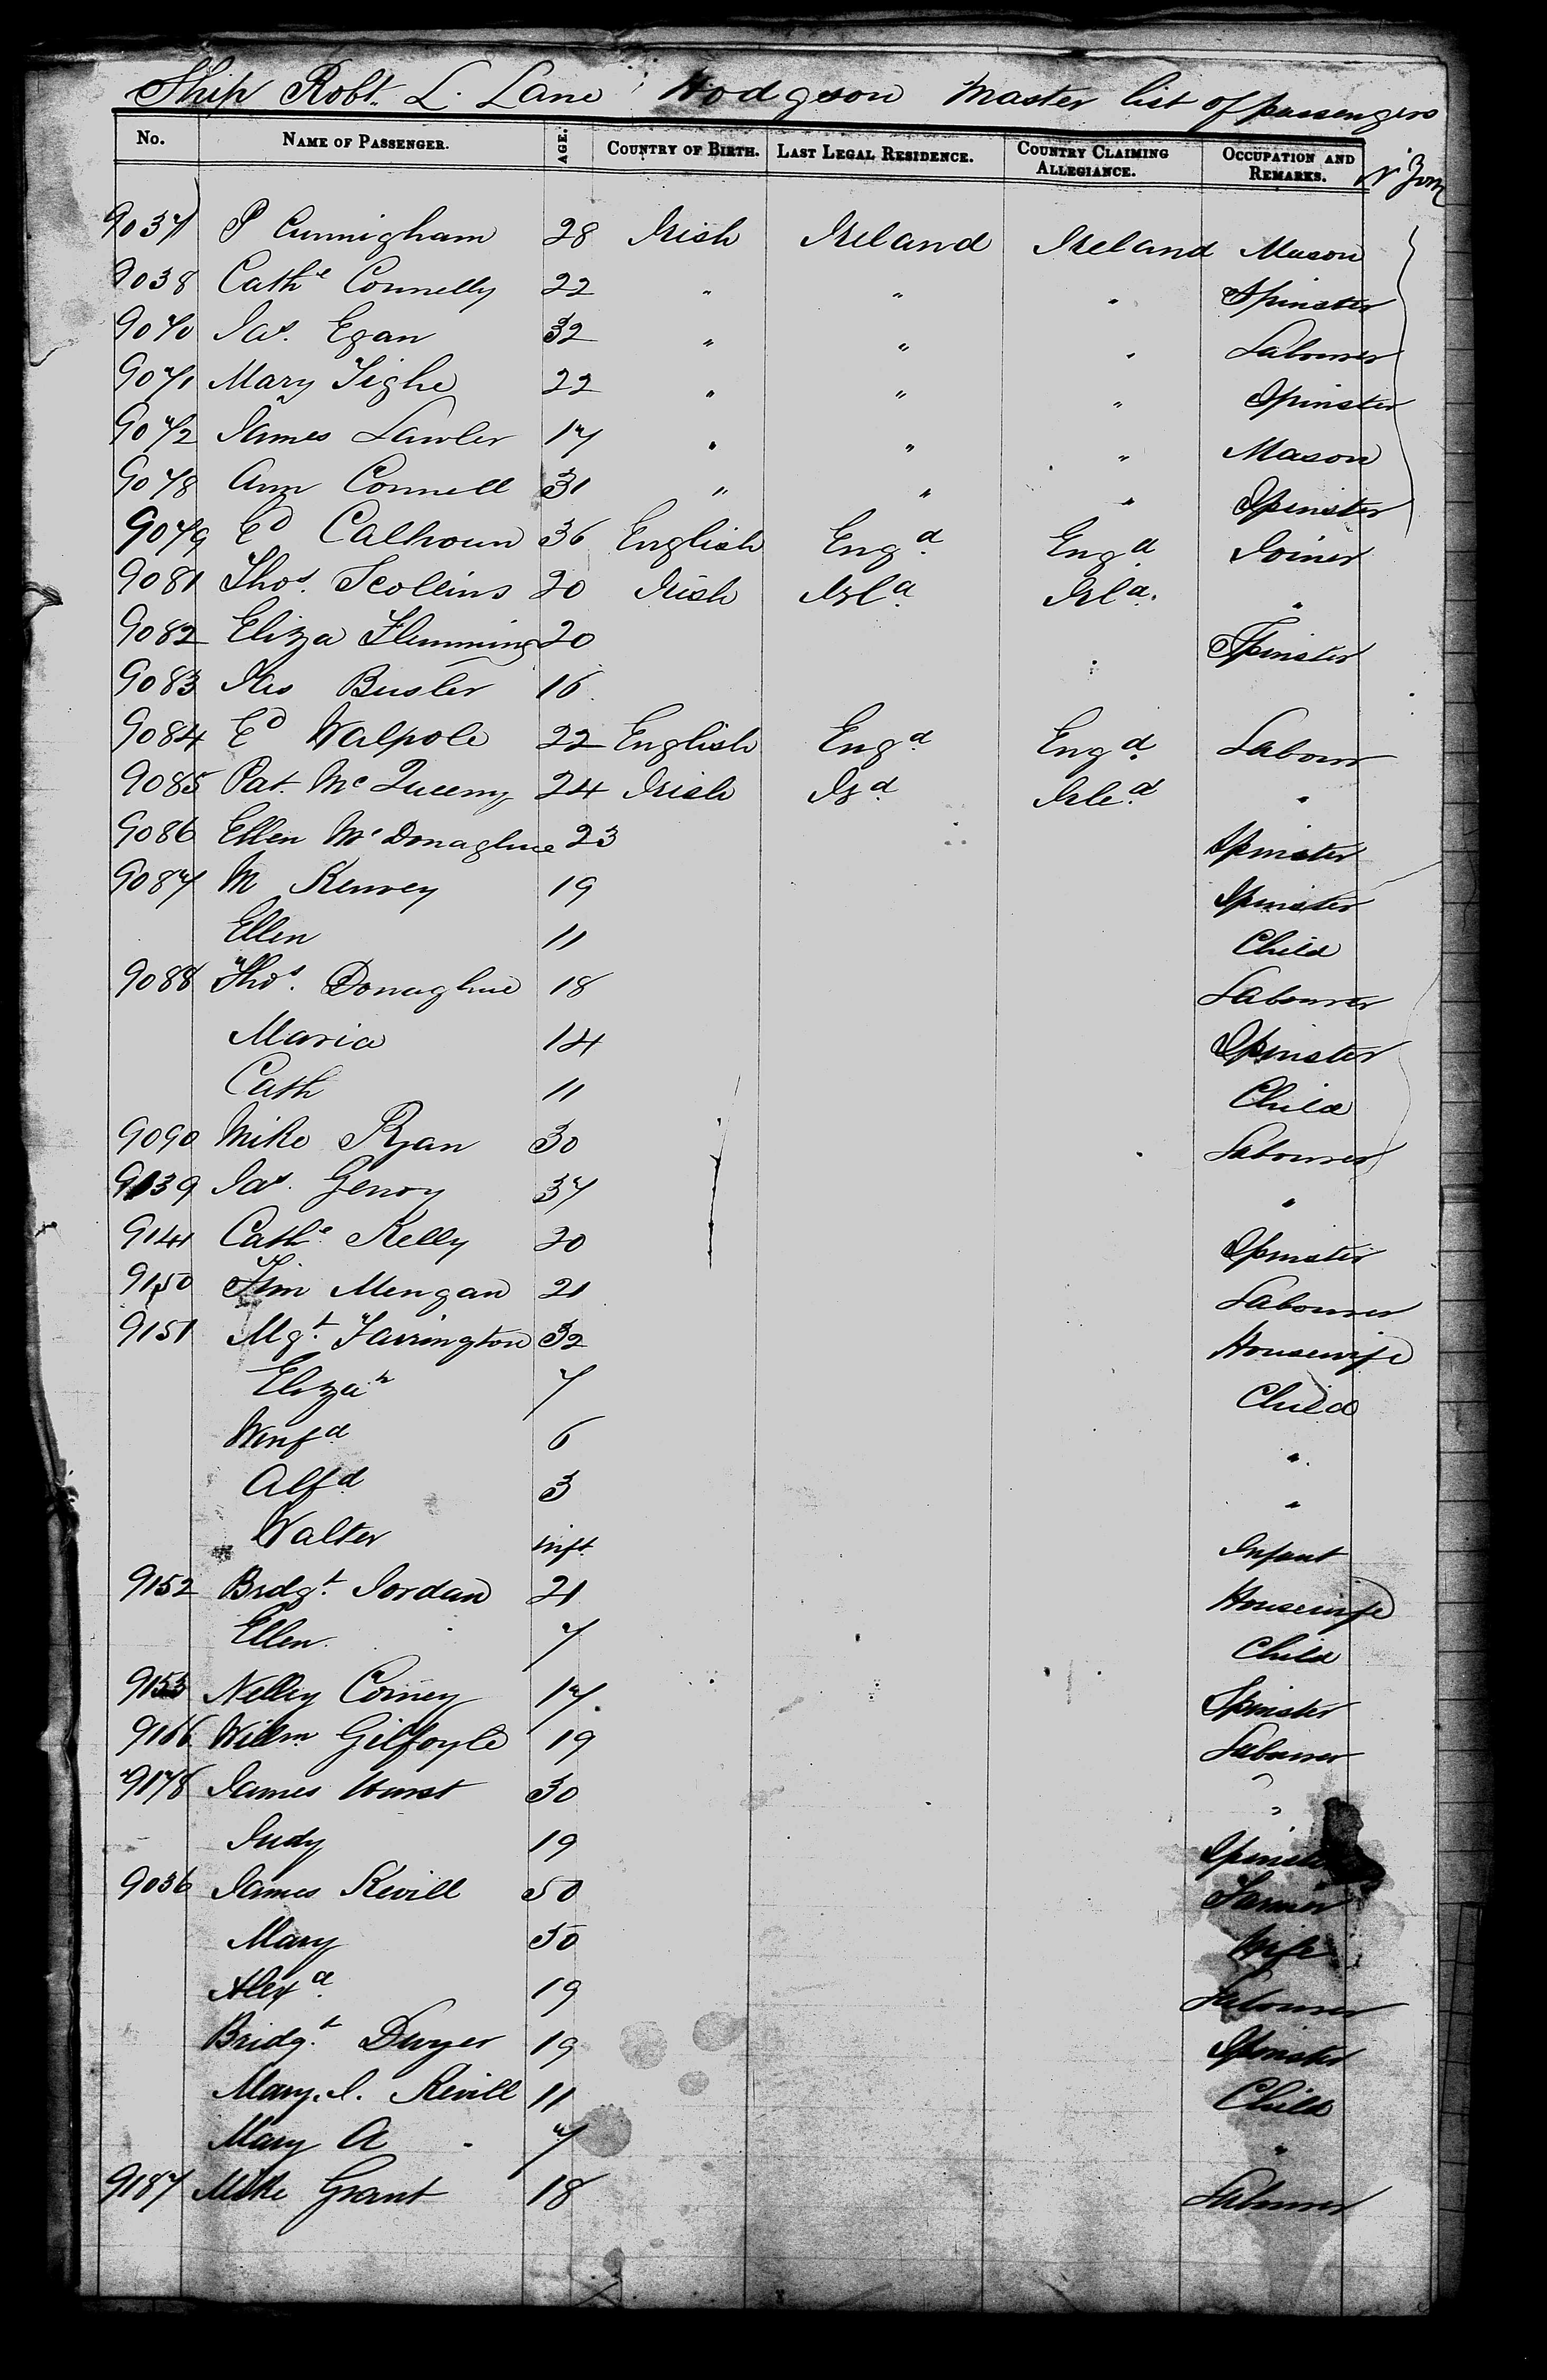 Ship Robt. L. Lane Hodgson Master list of passengers
No. NAME OF PASSENGER. AGE. COUNTRY OF BIRTH. LAST LEGAL RESIDENCE. COUNTRY CLAIMING ALLEGIANCE. OCCUPATION AND REMARKS.
9037 P Cunnigham 28 Irish Ireland Ireland Mason
9038 Cathe Connelly 22 " " " Spinster
9070 Jas. Egan 32 " " " Labourer
9071 Mary Tighe 22 " " " Spinster
9072 James Lawler 17 " " " Mason
9078 Ann Connell 31 " " " Spinster
9079 Ed Calhoun 36 English Engd. Engd. Joiner
9081 Thos. Scollins 20 Irish Irld. Irld. "
9082 Eliza Flemming 20 Spinster
9083 Jas 16
9084 Ed Walpole 22 English Engd. Engd. Labour
9085 Pat. Mc 24 Irish Ird. Irled. "
9086 Ellen McDonaghue 23 Spinster
9087 M 19 Spinster
Ellen 11 Child
9088 Thos. Donaghue 18 Labourer
Maria 14 Spinster
Cath 11 Child
9090 Mike Ryan 30 Labourer
9139 Jas. 37 "
9141 Cathe. Kelly 20 Spinster
9150 Tim Mengan 21 Labourer
9151 Mgt. Farrington 32 Housewife
Elizah 7 Child
Winfd. 6 "
Alfd. 3 "
Walter inft. Infant
9152 Bridgt. Jordan 21 Housewife
Ellen 7 Child
9153 Nelly Corney 17. Spinster
9166 Willm Gilfoyle 19 Labourer
9178 James Hurst 30 "
Judy 19 Spinster
9036 James Kevill 50 Farmer
Mary 50 Wife
Alexd. 19 Labourer
Bridgt. Dwyer 19 Spinster
Mary. J. Kevill 11 Child
Mary A 7 "
9187 Mike Grant 18 Labourer